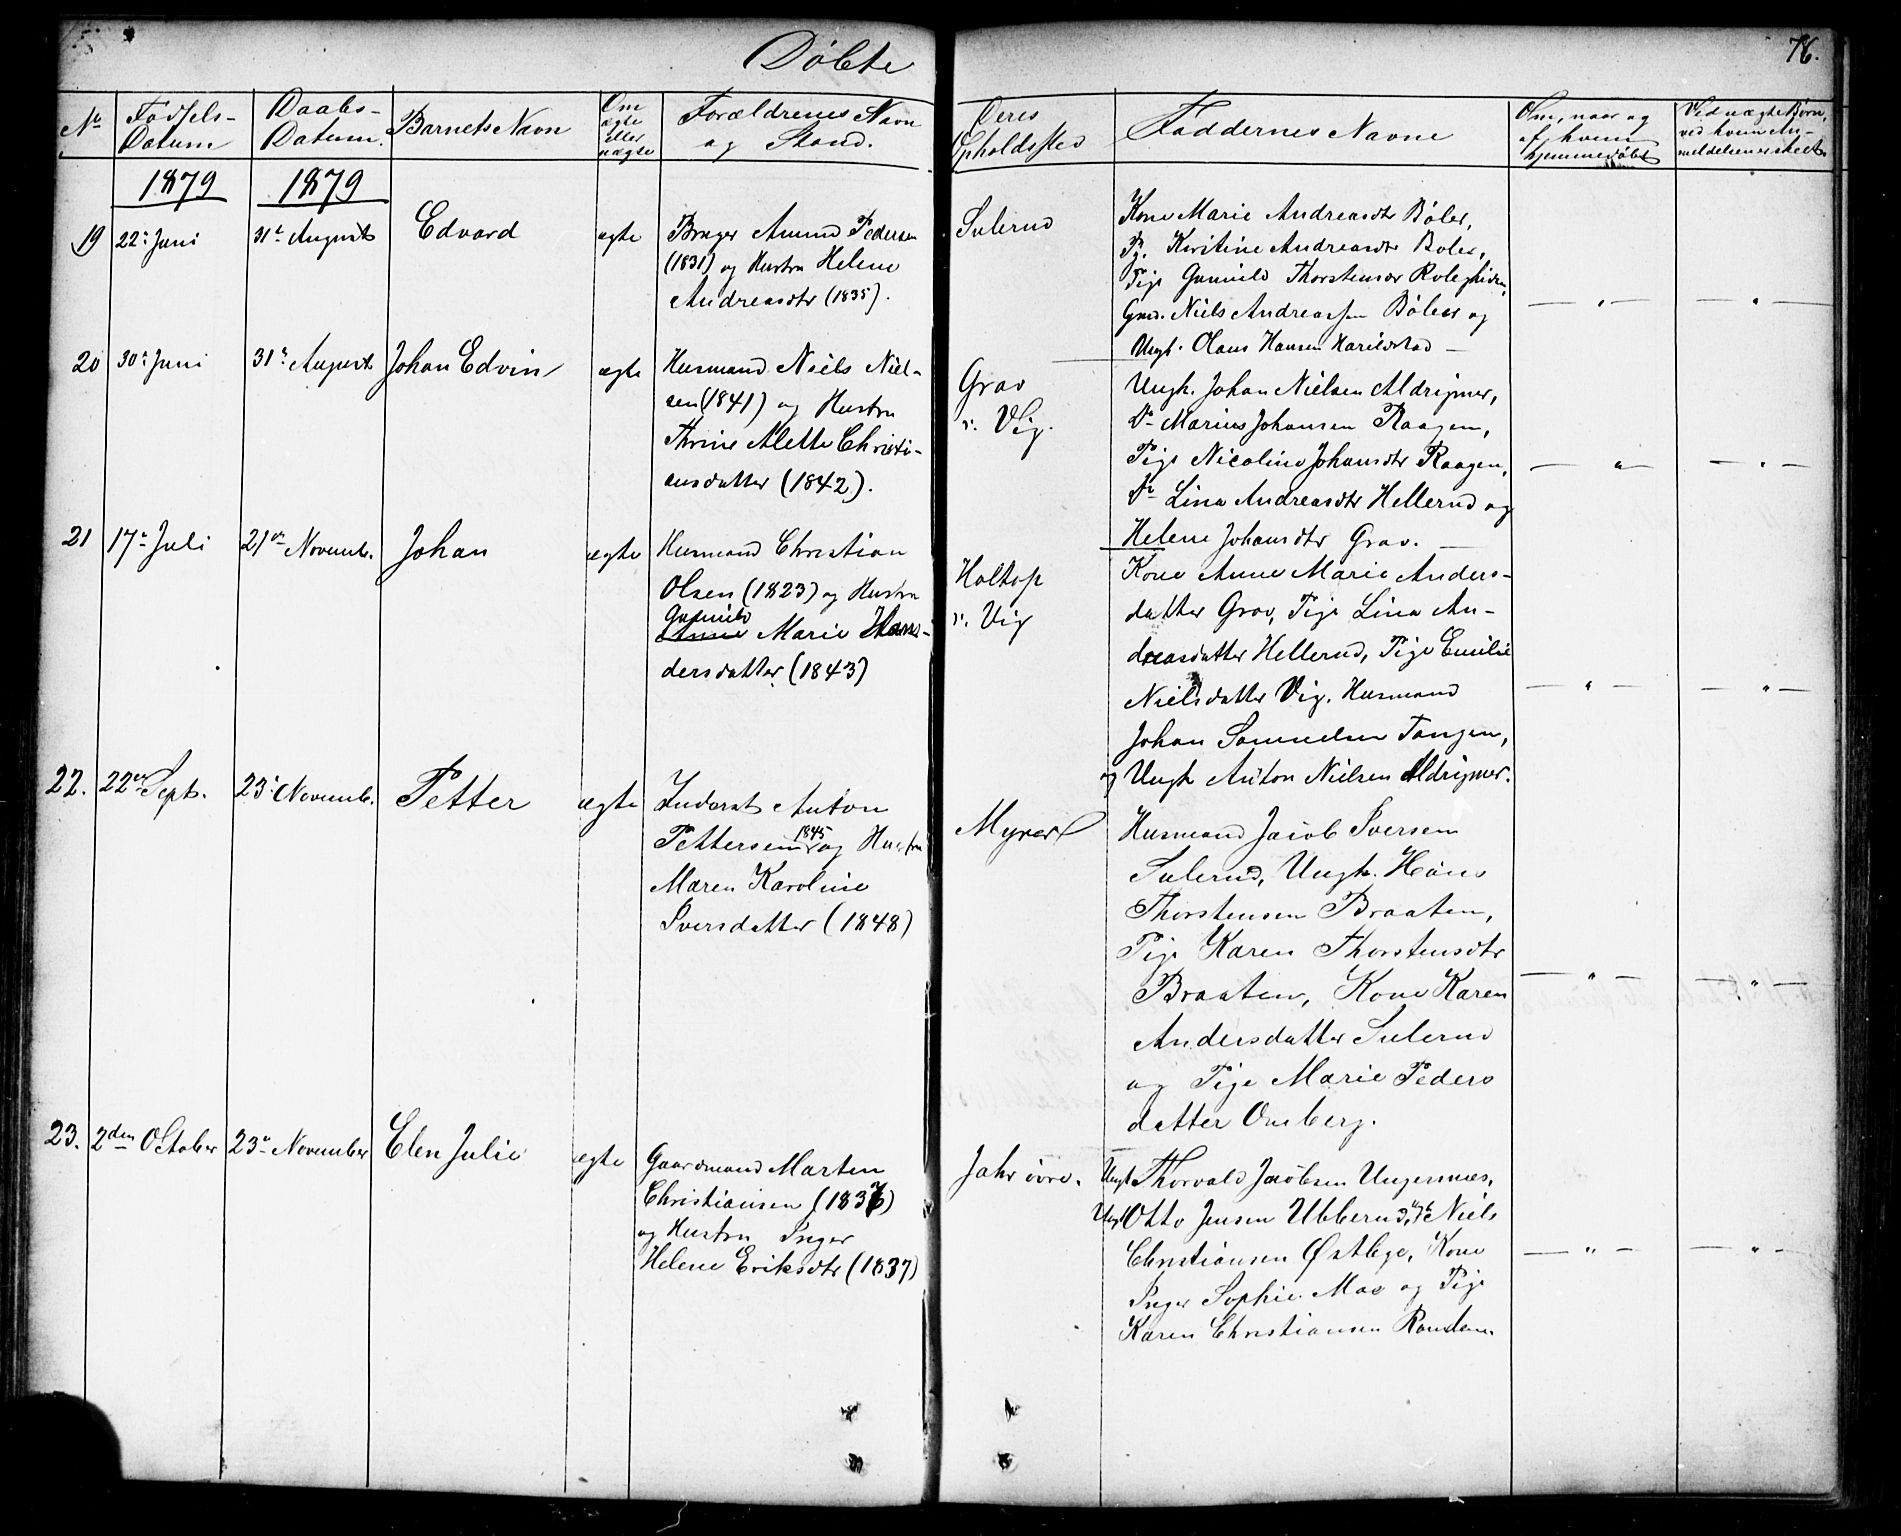 Døbte
76.
No
Fødsels-
Datum
Daabs-
Datum.
Barnets Navn
Om
ægte
eller
uægte
Forældrenes Navn
og Stand.
Deres
Opholdssted
Faddernes Navne
Om, naar og
af hvem
hjemmedøbt
Ved uægte Børn,
ved hvem An-
meldelsen er skeet.
1879
1879
19
22: Juni
31te August
Edvard
ægte
Bruger Amund Pedersen
(1831) og Hustru Helene
Andreasdtr (1835).
Sulerud
Kone Marie Andreasdtr Bøler,
Pg. Kiristine Andreasdtr Boler,
Pige Gunnild Thorstensdr
Grd. Niels Andreassen Bøler og
Ungk. Olaus Hansen Harildstad —
— " —
— " —
20
30: Juni
31: August
Johan Edvin
ægte
Husmand Niels Niel-
sen (1841) og Hustru
Thrine Alette Christi-
ensdatter (1842).
Grav
v. Vig.
Ungk. Johan Nielsen Aldrigmer,
Do Marius Johansen Raagen,
Pige Nicoline Johansdtr Raagen,
Do Lina Andreasdtr Hellerud og
Helene Johansdtr Grav. —
— " —
— " —
21
17: Juli
21de Novemb.
Johan
ægte
Husmand Christian
Olsen (1823) og Hustru
Gunnild
Anne Marie Han-
dersdatter (1843)
Holtop
v. Vig
Kone Anne Marie Anders-
datter Grav, Pige Lina An-
dreasdatter Hellerud, Pige Emilie
Nielsdatter Vig, Husmand
Johan Samuelsen Tangen,
og Ungk Anton Nielsen Aldrigmer.
— " —
— " —
22.
22de Sept.
23: Novemb.
Petter
ægte
Inderst Anton
1845
Pettersen og Hustru
Maren Karoline
Iversdatter (1848)
Myrer
Husmand Jacob Iversen
Sulerud, Ungk. Hans
Thorstensen Braaten,
Pige Karen Thorstensdtr
Braaten, Kone Karen
Andersdatter Sulerud
og Pige Marie Peders
datter Omberg.
— " —
— " —
23.
2den October
23: November
Elen Julie
ægte
Gaardmand Marten
Christiansen (1837)
og Hustru Inger
Helene Eriksdtr (1837)
Jahr øvre.
Ungk Thorvald Jacobsen Ungersnæs,
Ungk Otto Jensen Ubberud, Ugk Niels
Christiansen Østbye, Kone
Inger Sophie Moe og Pige
Karen Christiansen
— " —
— " —